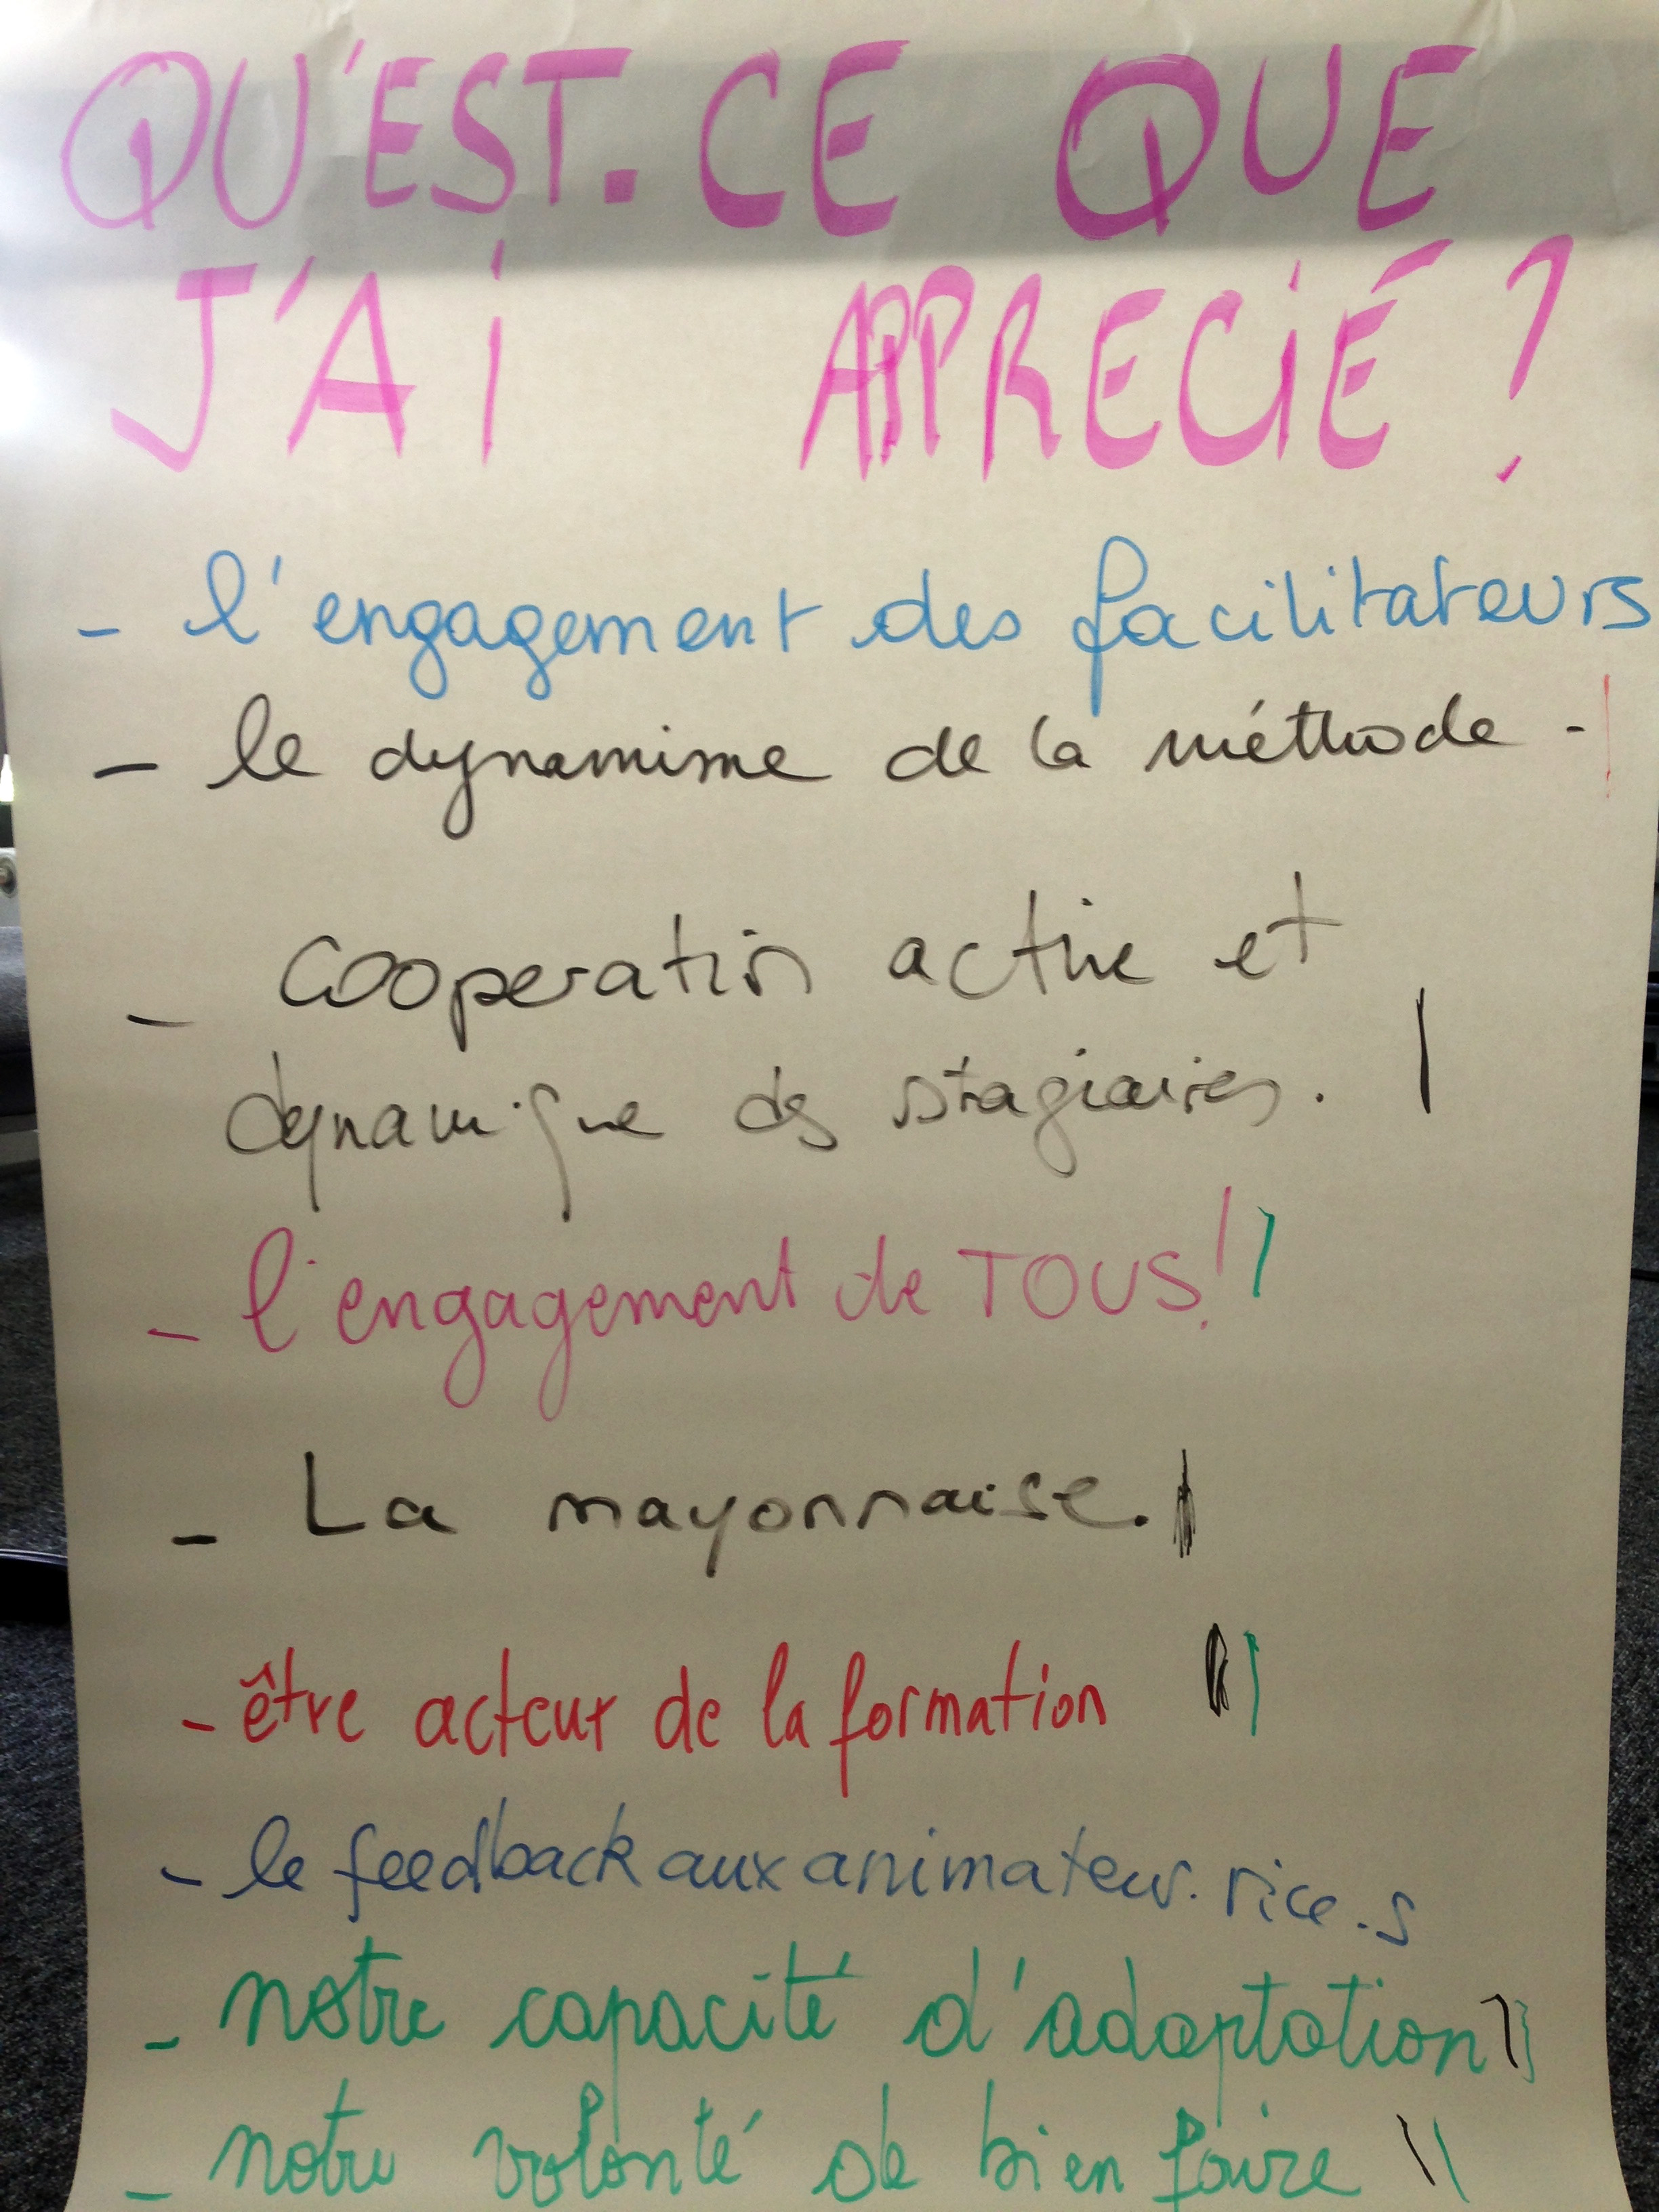 QU'EST-CE QUE
J'Ai APPRECiÉ ?
- l'engagement des facilitateurs
- le dynamisme de la méthode -
- Cooperation active et
dynamique des stagiaires.
- l'engagement de TOUS!
- La mayonnaise.
- être acteur de la formation
- le feedback aux animateur.rice.s
- notre capacité d'adaptation
- notre volonté de bien faire